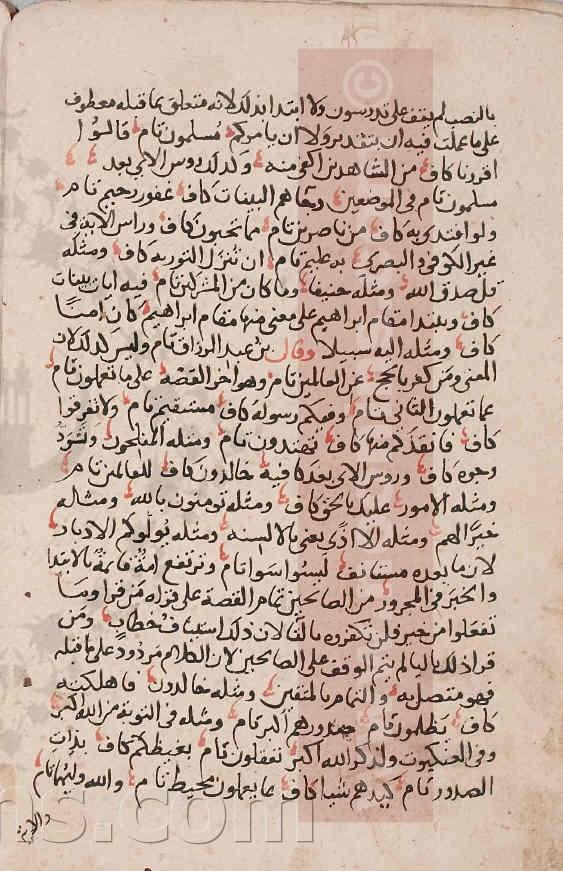 بالنصب لم يقف على تدرسون ولا ابتدا بذلك لانه متعلق بما قبله معطوف
على ما عملت فيه ان بتقدير ولا ان يامركم مسلمون تام قالوا
اقررنا كاف من الشاهدين اكفى منه وكذلك روس الاي بعد
مسلمون تام في الموضعين هم البينات كاف غفور رحيم تام
ولو افتدى به كاف من ناصرين تام مما تحبون كاف وراس الاية في
غير الكوفي والبصري به عليم تام ان تنزل التورية كاف ومثله
قل صدق الله ومثله حنيفا وما كان من المشركين تام فيه ايات بينات
كاف ويبتدا مقام ابراهيم على معنى منها مقام ابراهيم كان امنا
كاف ومثله اليه سبيلا وقال بن عبد الرزاق تام وليس كذلك لان
المعنى ومن كفر بالحج عن العالمين تام وهو اخر القصة على ما تعملون تام
عما تعملون الثاني تام وفيكم رسوله كاف مستقيم تام ولا تفرقوا
كاف فانقذكم منها كاف تهتدون تام ومثله المفلحون وتسود
وجوه كاف وروس الاي بعد كافية خالدون كاف للعالمين تام
ومثله الامور عليك بالحق كاف ومثله تومنون بالله ومثله
خيرا لهم ومثله الا اذى يعني بالالسنة ومثله يولوكم الادبار
لان ما بعده مستانف ليسوا سوا تام وترتفع امة قائمة بالابتدا
والخبر في المجرور من الصالحين تمام القصة على قراة من قرا وما
تفعلوا من خير فلن تكفروه بالتا لان ذلك استيناف خطاب ومن
قرا ذلك باليا لم يتم الوقف على الصالحين لان الكلام مردود على ما قبله
فهو متصل به والتمام بالمتقين ومثله خالدون فاهلكته
كاف يظلمون تام صدورهم اكبر تام ومثله في التوبة من الله اكبر
وفي العنكبوت ولذكر الله اكبر تعقلون تام بغيظكم كاف بذات
الصدور تام كيدهم شيا كاف بما يعملون محيط تام والله وليهما تام